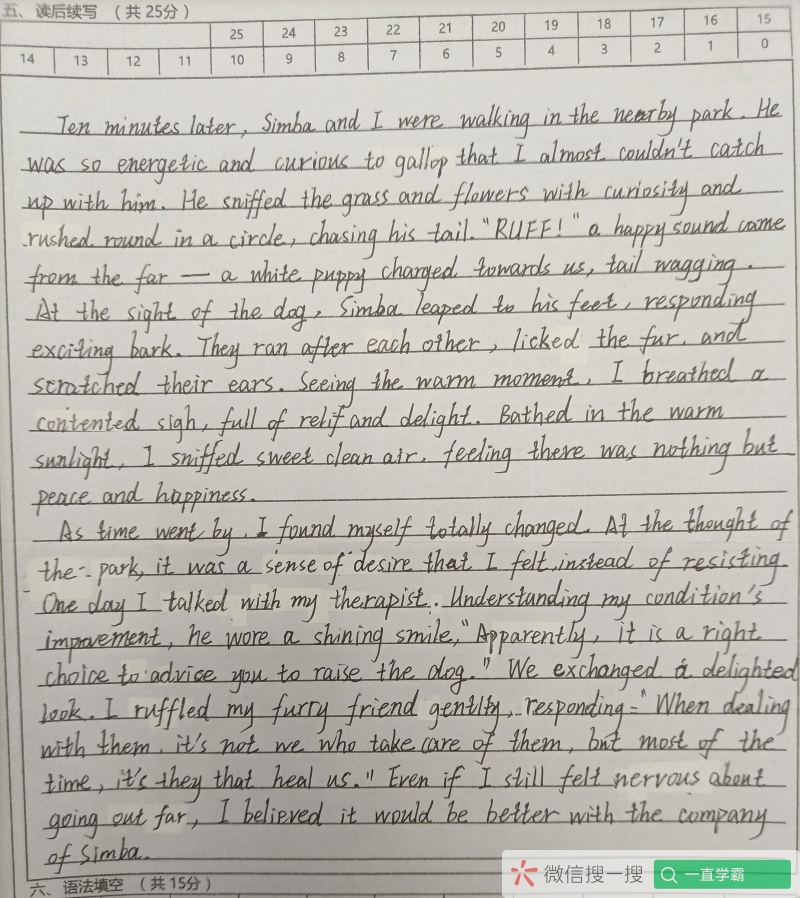 五、读后续写 （共 25分）
25 24 23 22 21 20 19 18 17 16 15
14 13 12 11 10 9 8 7 6 5 4 3 2 1 0
Ten minutes later, Simba and I were walking in the nearby park. He
was so energetic and curious to gallop that I almost couldn't catch
up with him. He sniffed the grass and flowers with curiosity and
rushed round in a circle, chasing his tail. "RUFF!" a happy sound came
from the far — a white puppy charged towards us, tail wagging.
At the sight of the dog, Simba leaped to his feet, responding
exciting bark. They ran after each other, licked the fur, and
scratched their ears. Seeing the warm moment, I breathed a
contented sigh, full of relif and delight. Bathed in the warm
sunlight, I sniffed sweet clean air, feeling there was nothing but
peace and happiness.
As time went by, I found myself totally changed. At the thought of
the park, it was a sense of desire that I felt, instead of resisting.
One day I talked with my therapist. Understanding my condition's
improvement, he wore a shining smile, "Apparently, it is a right
choice to advise you to raise the dog." We exchanged a delighted
look. I ruffled my furry friend gentlty, responding "When dealing
with them, it's not we who take care of them, but most of the
time, it's they that heal us." Even if I still felt nervous about
going out far, I believed it would be better with the company
of Simba.
六、语法填空 （共 15分）
微信搜一搜 一直学霸